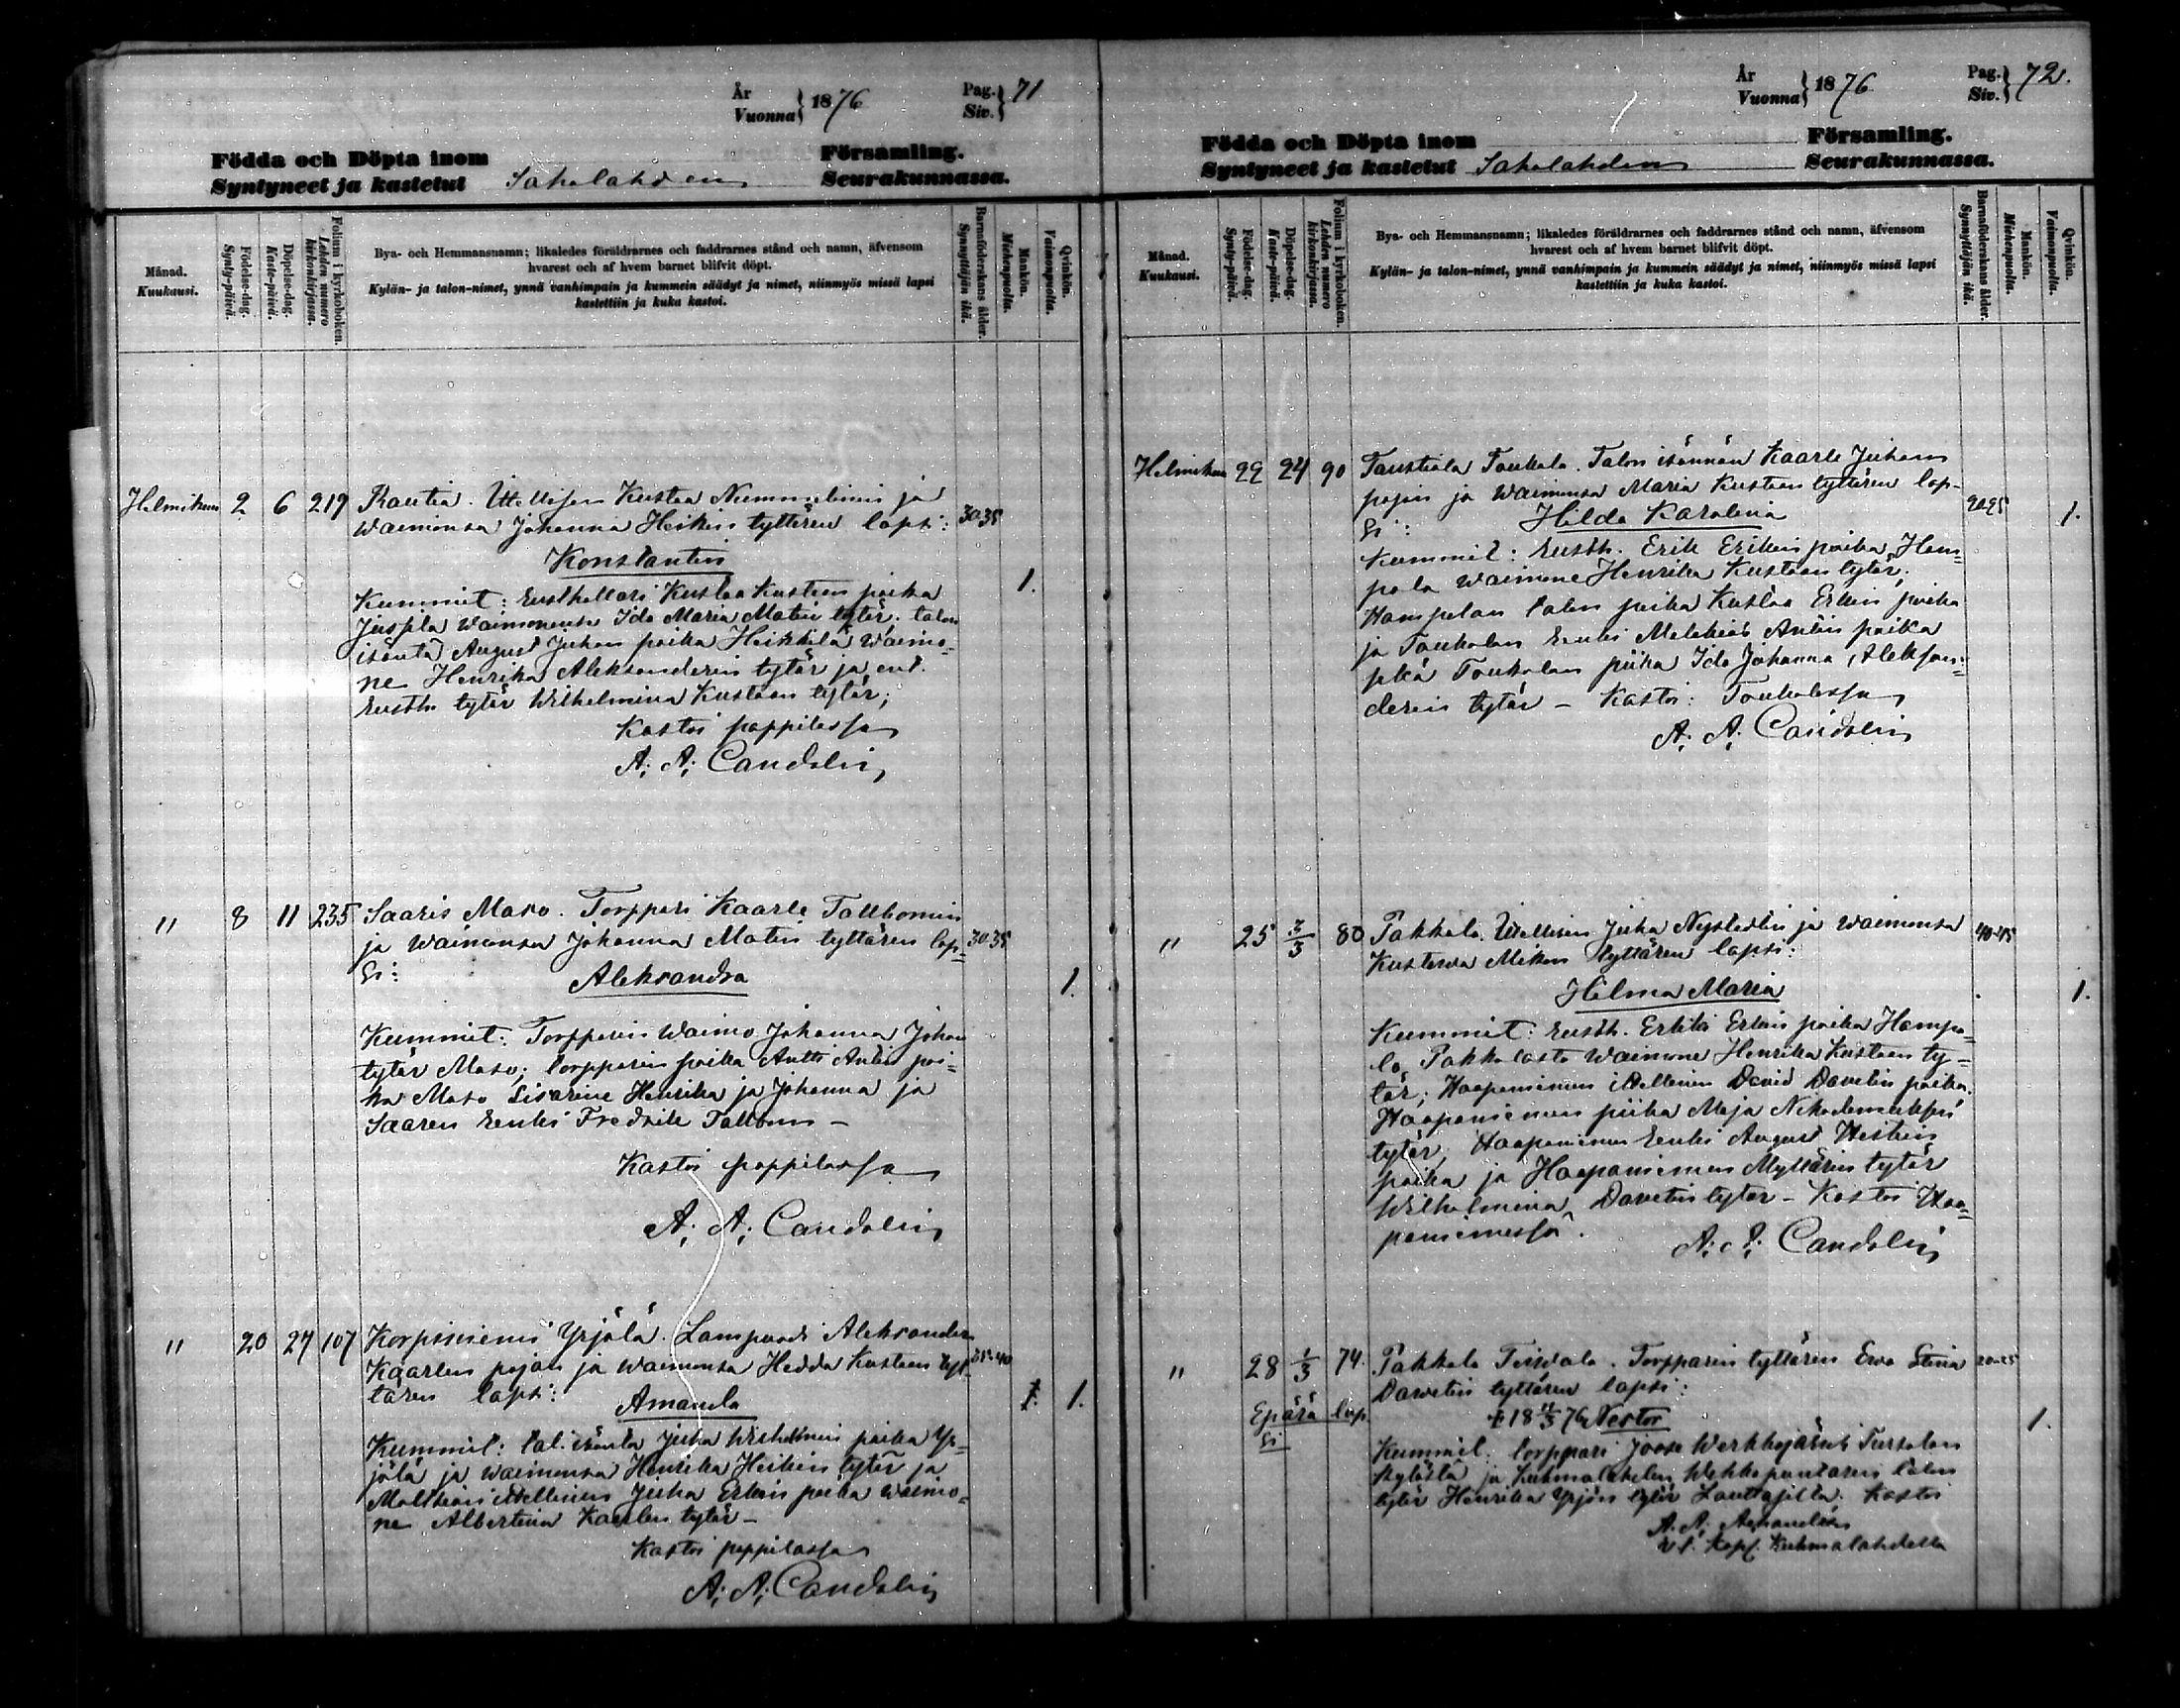 År
Vuonna } 1876
Pag.
Siv. } 71
Födda och Döpta inom
Församling.
Syntyneet ja kastetut Sahalahden Seurakunnassa.
Månad.
Kuukausi.
Födelse-dag.
Synty-päivä.
Döpelse-dag.
Kaste-päivä.
Folium i kyrkoboken.
Lehden numero
kirkonkirjassa.
Bya- och Hemmansnamn; likaledes föräldrarnes och faddrarnes stånd och namn, äfvensom
hvarest och af hvem barnet blifvit döpt.
Kylän- ja talon-nimet, ynnä vanhimpain ja kummein säädyt ja nimet, niinmyös missä lapsi
kastettiin ja kuka kastoi.
Barnaföderskans ålder.
Synnyttäjän ikä.
Mankön.
Miehenpuolta.
Qvinkön.
Vaimonpuolta.
Helmikuu 2 6 219 Rautia. Itellisen Kustaa Nummelinin ja
waimonsa Johanna Heikin tyttären lapsi: 30-35
Konstantin
1.
Kummit: Kustaa Kustaan poika
Jussila waimonensa Ida Maria Matin tytär, talon
isäntä August Juhan poika Heikkilä waimo-
ne Henrika Aleksanderin tytär ja
tytär Wilhelmina Kustaan tytär;
Kastoi pappilassa
A. A. Candolin
" 8 11 235 Saaris Maso. Torppari Kaarle Tallbomin
ja waimonsa Johanna Matin tyttären lap= 30-35
si: Aleksandra 1.
Kummit: Torpparin waimo Johanna Johan
tytär Maso; torpparin poika Antti Antin poi=
ka Maso Sisarine Henrika ja Johanna ja
Saaren Renki Fredrik Tallbom –
Kastoi pappilassa
A. A. Candolin
" 20 27 107 Korpiniemi Yrjölä. Lampuodi Aleksander
Kaarlen pojan ja waimonsa Hedda Kustaan tyt= 35-40
tären lapsi: Amanda 1. 1.
Kummit: tal. isäntä Juha Wilhelmin poika Yr=
jölä ja waimonsa Henrika Heikin tytär ja
itellinen Juha Erkin poika waimo=
ne Albertina Kaarlen tytär –
Kastoi pappilassa
A. A. Candolin
År
Vuonna } 1876
Pag.
Siv. } 72.
Födda och Döpta inom Församling.
Syntyneet ja kastetut Sahalahden Seurakunnassa.
Månad.
Kuukausi.
Födelse-dag.
Synty-päivä.
Döpelse-dag.
Kaste-päivä.
Folium i kyrkoboken.
Lehden numero
kirkonkirjassa.
Bya- och Hemmansnamn; likaledes föräldrarnes och faddrarnes stånd och namn, äfvensom
hvarest och af hvem barnet blifvit döpt.
Kylän- ja talon-nimet, ynnä vanhimpain ja kummein säädyt ja nimet, niinmyös missä lapsi
kastettiin ja kuka kastoi.
Barnaföderskans ålder.
Synnyttäjän ikä.
Mankön.
Miehenpuolta.
Qvinkön.
Vaimonpuolta.
Helmikuu 22 24 90 Taustiala Toukola. Talon isännän Kaarle Juhan
pojan ja waimonsa Maria Kustaan tyttären lap-
si: Hilda Karolina 20-25 1.
Kummit: Rusth. Erik Erikin poika Ham=
pola waimone Henrika Kustaan tytär;
Hampolan talon poika Kustaa Erkin poika
ja Toukolan Renki Melekias Antin poika
Toukolan piika Ida Johanna Aleksan=
derin tytär – Kastoi: Toukolassa
A. A. Candolin
" 25 3/3 80 Pakkala. Itellisen Juha Nystedtin ja waimonsa 40-45
Kustawa Mikon tyttären lapsi:
Hilma Maria 1.
Kummit: Rusth. Erkki Erkin poika Hampo=
la Pakkalasta waimone Henrika Kustaan ty=
tär; Haapaniemen itellinen David Davetin poika,
Haapaniemen piika Maja
tytär, Haapaniemen Renki August Heikin
poika ja Haapaniemen Myllärin tytär
Wilhelmina Davetin tytär – Kastoi Haa=
paniemessä.
A. A. Candolin
" 28 1/3 74. Pakkala Teiwala. Torpparin tyttären Ewa Stina 20-25
Dawetin tyttären lapsi:
Epärä lap
si
+ 18 11/3 76 Nestor 1.
Kummit: torppari Joose
kylästä ja Kuhmalahden talon
tytär Henrika Yrjön tytär Kastoi
A. A.
v. t. Kapl. Kuhmalahdella